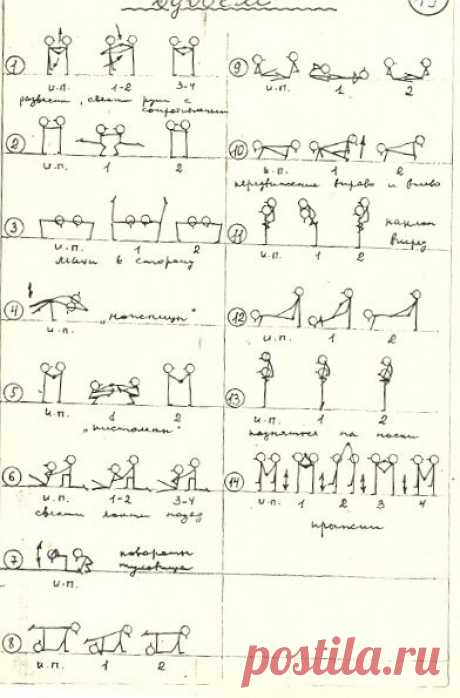 вдвоём
13
1
и.п. 1-2 3-4
развести, свести руки с
сопротивлением
2
и.п. 1 2
3
и.п. 1 2
махи в сторону
4
и.п. "ножницы"
5
и.п. 1 2
6
и.п. 1-2 3-4
свести локти назад
7
повороты
туловища
и.п.
8
и.п. 1 2
9
и.п. 1 2
10
и.п. 1 2
передвижение вправо и влево
11
наклон
вперед
и.п. 1 2
12
и.п. 1 2
13
и.п. 1 2
подняться на носки
14
и.п. 1 2 3 4
прыжки
postila.ru